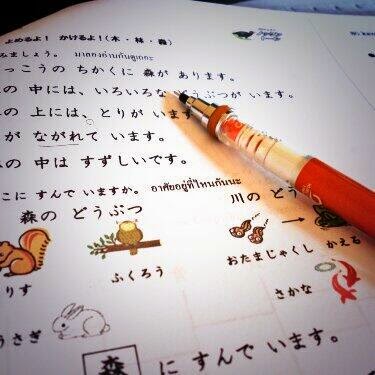 よめるよ! かけるよ!(木・林・森)
みましょう。 มาลองอ่านกันดูเถอะ
っこうの ちかくに 森が あります。
の 中には、いろいろな どうぶつが います。
の 上には、とりが います
が ながれて います。
の 中は すずしいです。
こに すんで いますか。 อาศัยอยู่ที่ไหนกันนะ
森の どうぶつ
川の どう
りす
ふくろう
おたまじゃくし
かえる
うさぎ
さかな
森 に すんで います。